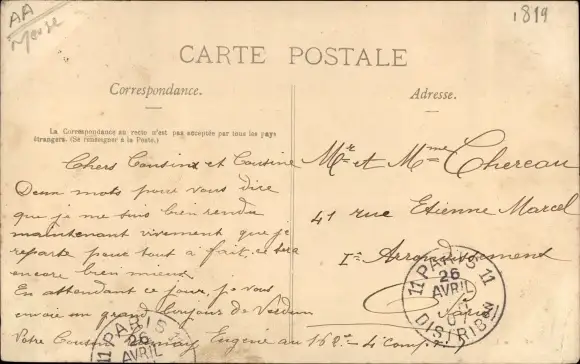 AA
Meuse
1819
CARTE POSTALE
Correspondance.
Adresse.
La Correspondance au recto n'est pas acceptée par tous les pays
étrangers. (Se renseigner à la Poste.)
Chers Cousins et Cousine
Deux mots pour vous dire
que je me suis bien rendu
maintenant vivement que je
reparte pour tout à fait, ce sera
encore bien mieux
En attendant ce jour, je vous
envoie un grand bonjours de Verdun
Votre Cousin Eugène au 162e - 4e Comp.
Mr et Mme Chereau
41 rue Etienne Marcel
Ie Arrondissement
Paris
11 PARIS 11
26
AVRIL
07
DISTRIBON
11 PARIS
26
AVRIL